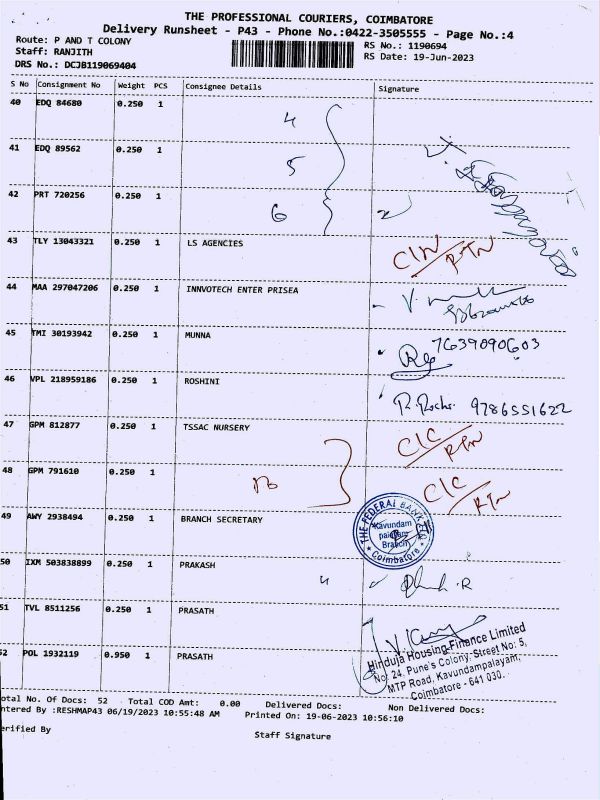 THE PROFESSIONAL COURIERS, COIMBATORE
Delivery Runsheet - P43 - Phone No.:0422-3505555 - Page No.:4
Route: P AND T COLONY
RS No.: 1190694
Staff: RANJITH
RS Date: 19-Jun-2023
DRS No.: DCJB119069404
S No Consignment No Weight PCS Consignee Details Signature
40 EDQ 84680 0.250 1 4
41 EDQ 89562 0.250 1 5
42 PRT 720256 0.250 1 6
43 TLY 13043321 0.250 1 LS AGENCIES RTN
44 MAA 297047206 0.250 1 INNVOTECH ENTER PRISEA
45 TMI 30193942 0.250 1 MUNNA 7639090603
46 VPL 218959186 0.250 1 ROSHINI 9786551622
47 GPM 812877 0.250 1 TSSAC NURSERY C/C RTN
48 GPM 791610 0.250 1 C/C RTN
49 AWY 2938494 0.250 1 BRANCH SECRETARY
THE FEDERAL BANK LTD
Kavundam
palayam
Branch
Coimbatore
50 IXM 503838899 0.250 1 PRAKASH
51 TVL 8511256 0.250 1 PRASATH
52 POL 1932119 0.950 1 PRASATH
Hinduja Housing Finance Limited
No: 24, Pune's Colony, Street No: 5,
MTP Road, Kavundampalayam,
Coimbatore - 641 030.
otal No. Of Docs: 52 Total COD Amt: 0.00 Delivered Docs: Non Delivered Docs:
ntered By :RESHMAP43 06/19/2023 10:55:48 AM Printed On: 19-06-2023 10:56:10
erified By
Staff Signature